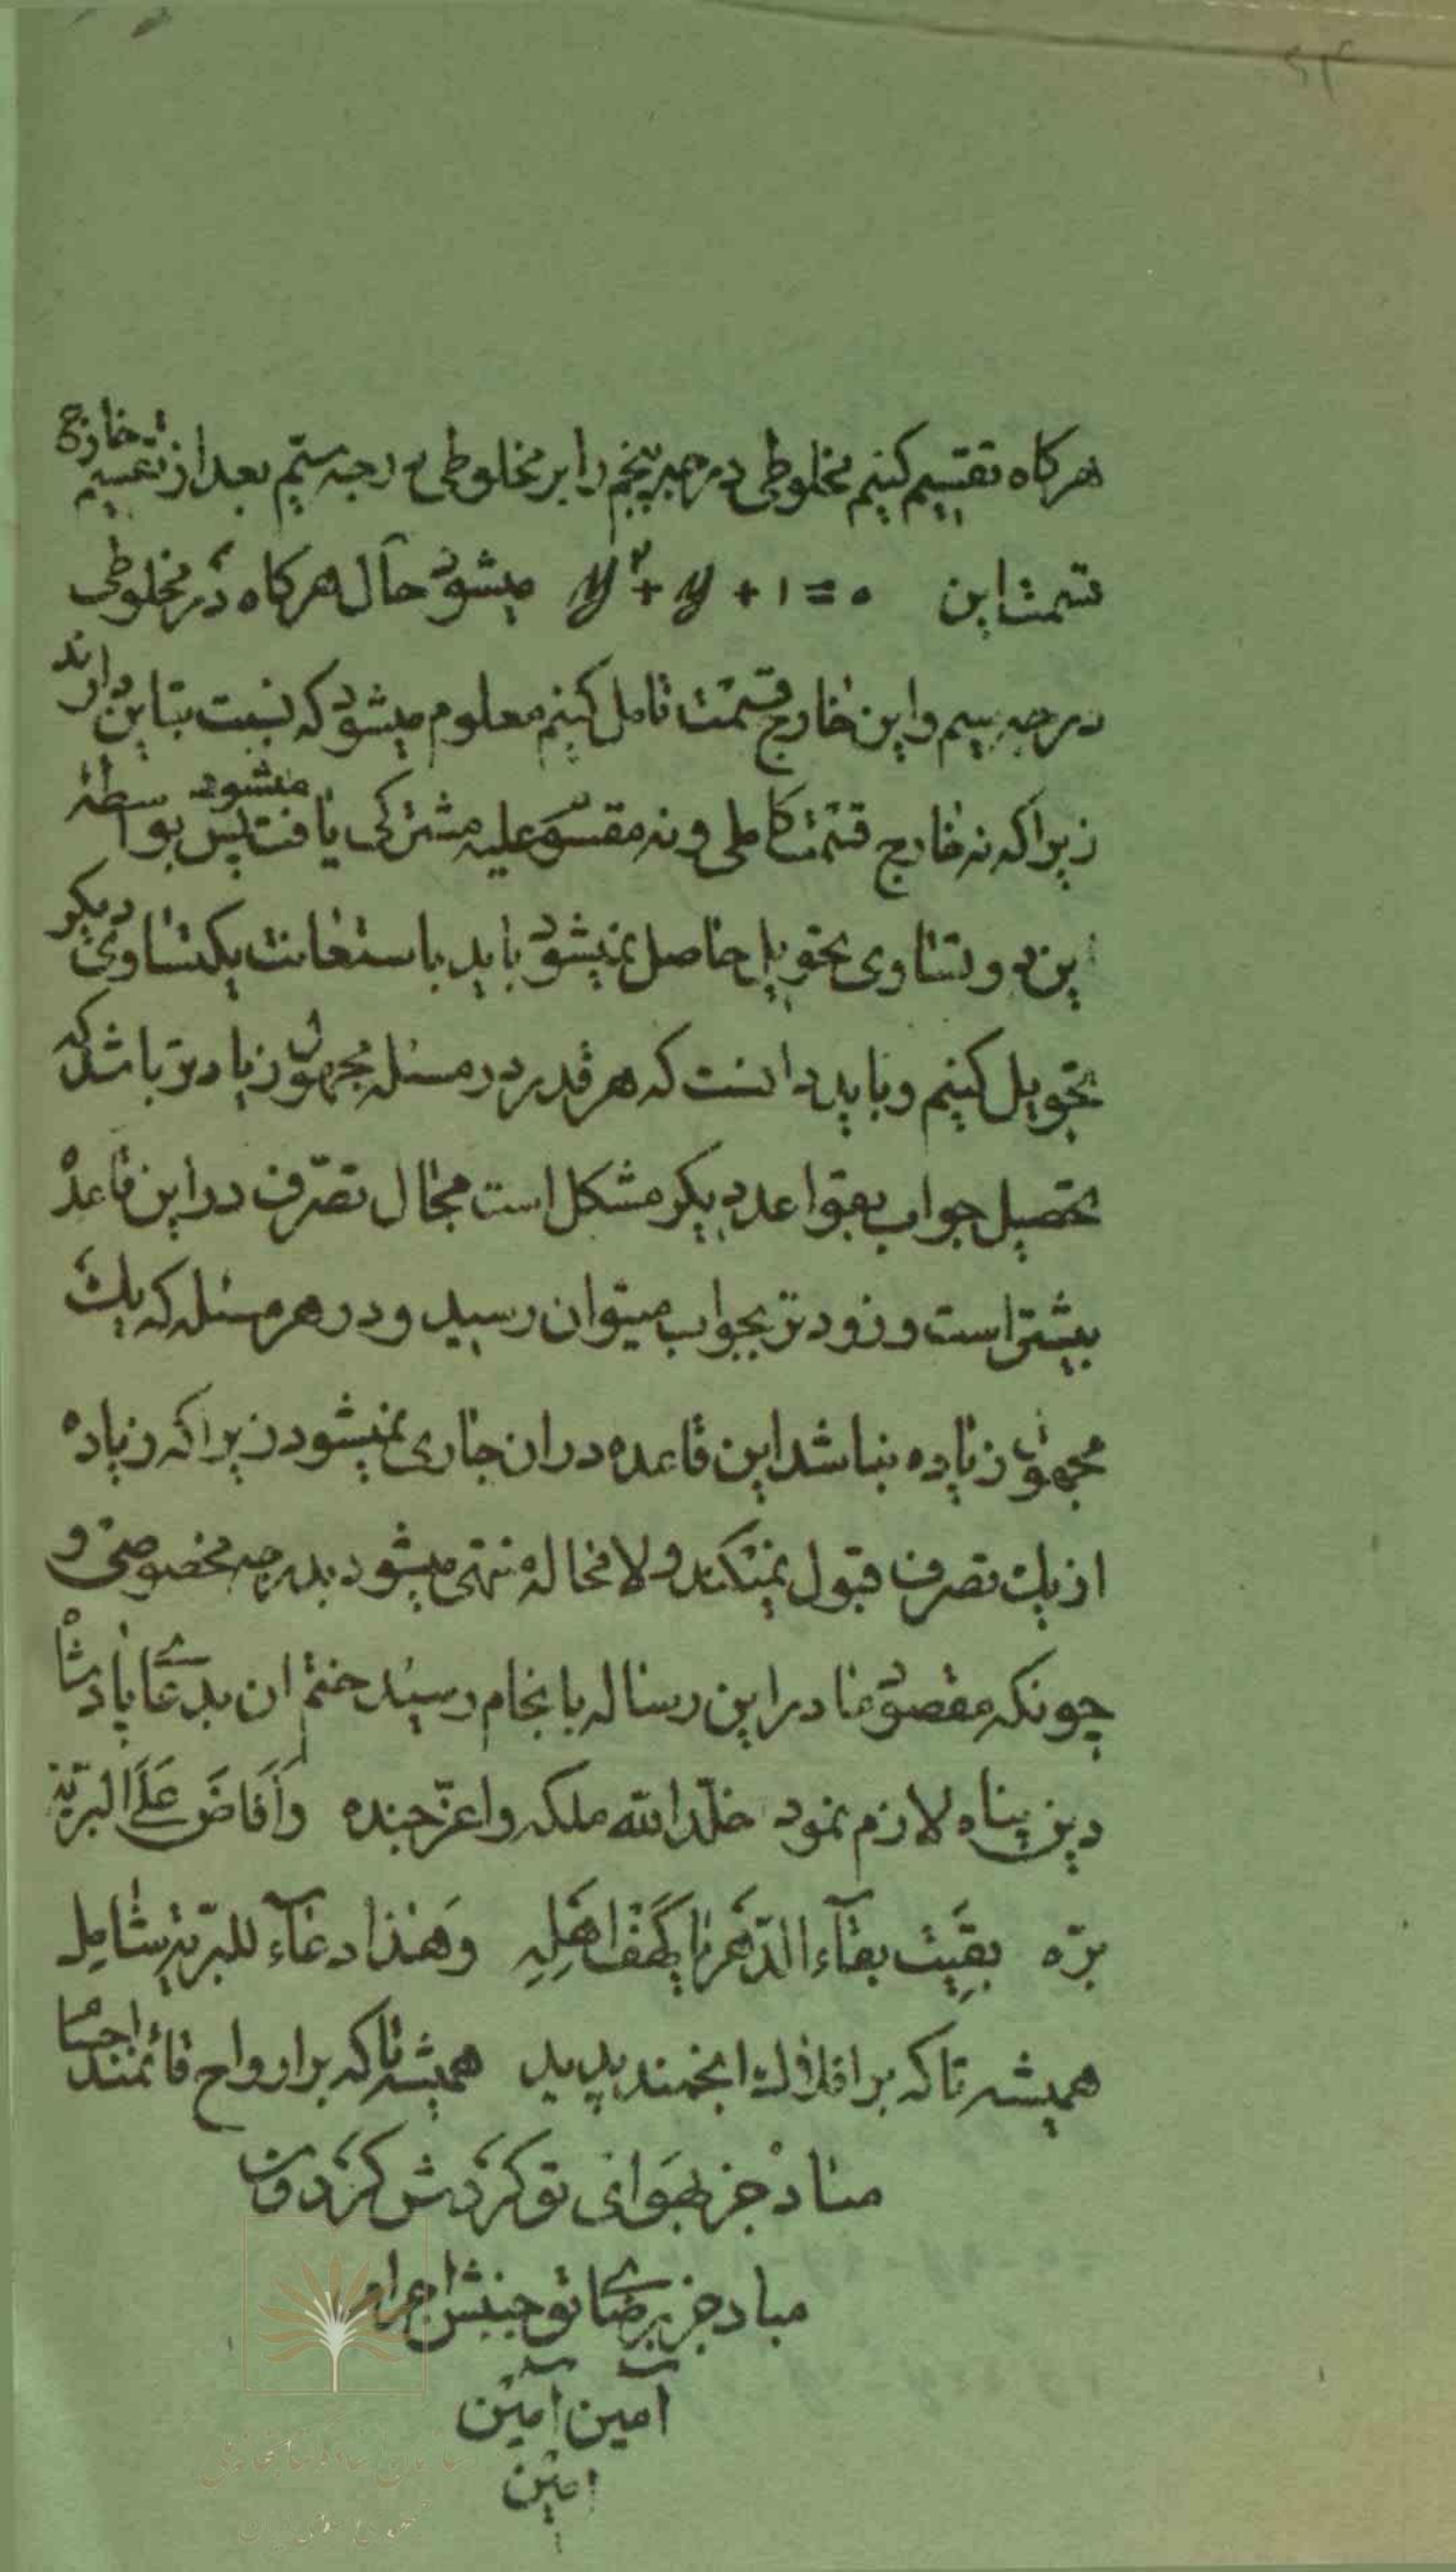 هرکاه تقسیم کنیم مخلوطی درجه پنجم را بر مخلوطی درجه ستّم بعد از تقسیم خارج
قسمت این y² + y + 1 = 0 میشود حال هرکاه در مخلوطی
درجه سیم و این خارج قسمت تامل کنیم معلوم میشود که نسبت تباین دارند
زیرا که نه خارج قسمت کاملی و نه مقسوم علیه مشترکی یافت میشود پس بواسطهٔ
این دو تساوی تحویل حاصل نمیشود باید باستعانت یکتساوی دیکر
تحویل کنیم و باید دانست که هر قدر در مسئله مجهول زیادتر باشد که
تحصیل جواب بقواعد دیکر مشکل است مجال تصرّف در این قاعده
بیشتر است و زودتر بجواب میتوان رسید و در هر مسئله که یک
مجهول زیاده نباشد این قاعده در ان جاری نمیشود زیرا که زیاده
از یک تصرف قبول نمیکند و لا محاله منتهی میشود بدرجه مخصوصی و
چونکه مقصود ما در این رساله بانجام رسید ختم ان بدعای پادشاه
دین پناه لازم نمود خلّد الله ملکه و اعزّ جنده وَ أَفَاضَ عَلَی البرّیة
برّه بقیت بقآء الدّهر یا کهف اهلِهِ وَ هذا دعآء للبرّیة شامل
همیشه تا که بر افلاک انجمند پدید همیشه تا که بر ارواح قائمند اجسام
مباد جز بهوای تو کردش کردون
مباد جز برضای تو جنبش اجرام
آمین آمین
امین